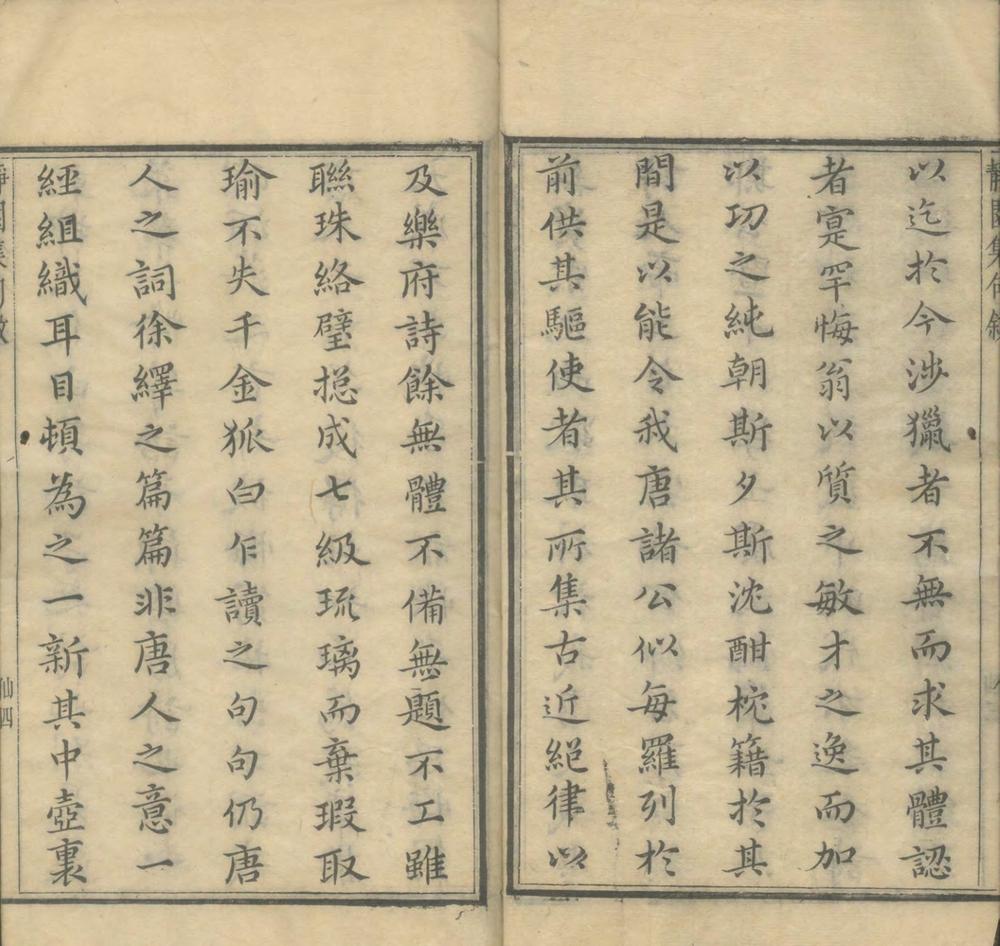 以迄於今涉獵者不無而求其體認
者寔罕悔翁以質之敏才之逸而加
以功之純朝斯夕斯沈酣枕籍於其
間是以能令我唐諸公似每羅列於
前供其驅使者其所集古近絕律以
及樂府詩餘無體不備無題不工雖
聯珠絡璧揔成七級琉璃而棄瑕取
瑜不失千金狐白乍讀之句句仍唐
人之詞徐繹之篇篇非唐人之意一
經組織耳目頓為之一新其中壺裏
仙四